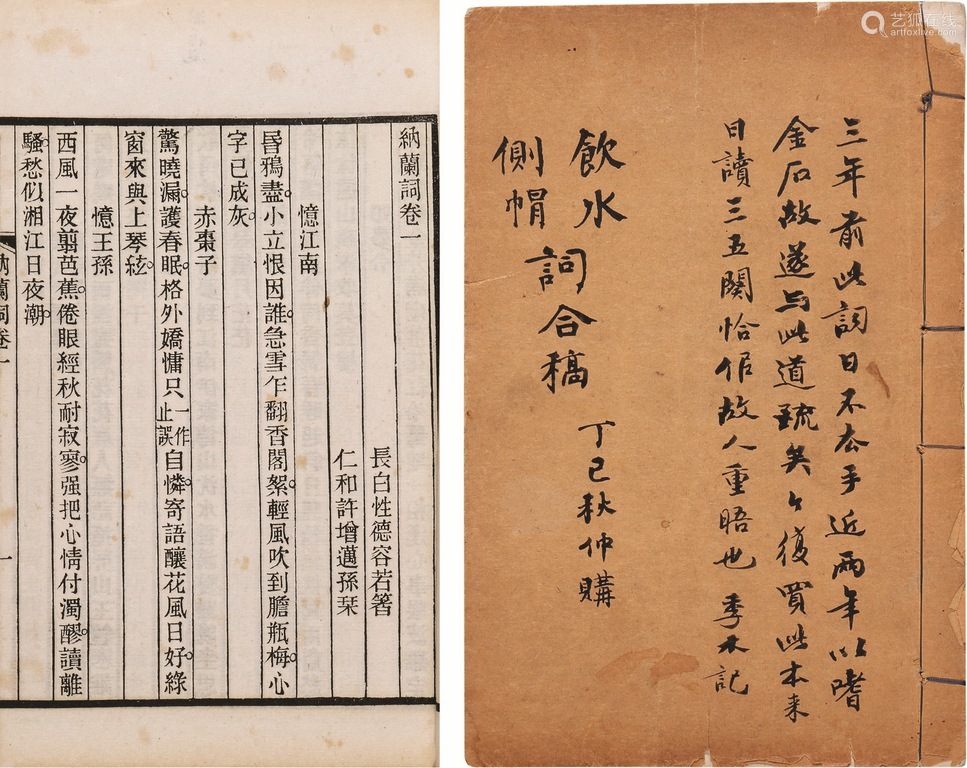 納蘭詞卷一
長白性德容若著
仁和許增邁孫栞
憶江南
昬鴉盡。小立恨因誰。急雪乍翻香閣絮。輕風吹到膽瓶梅。心
字已成灰。
赤棗子
驚曉漏。護春眠。格外嬌慵只一作止誤自憐。寄語釀花風日好。綠
窗來與上琴絃。
憶王孫
西風一夜翦芭蕉。倦眼經秋耐寂寥。强把心情付濁醪。讀離
騷。愁似湘江日夜潮。
納蘭詞卷一
一
三年前此詞日不去手近兩年以嗜
金石故遂与此道疏矣今復買此本来
日讀三五闋恰似故人重晤也 季木記
飲水
側帽
詞合稿
丁巳秋仲購
艺狐在线
artfoxlive.com